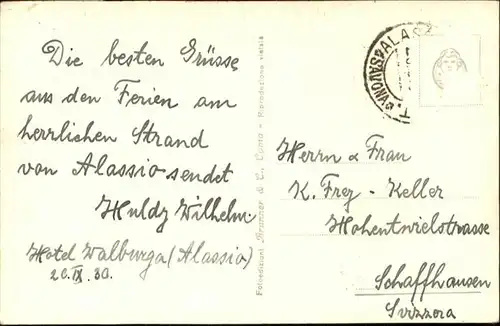 Die besten Grüsse
aus den Ferien am
herrlichen Strand
von Alassio sendet
Huldy Wilhelm.
Hotel Walburga (Alassio)
20. IX. 30.
Fotoedizioni Brunner & C., Como - Riproduzione vietata
ALAS
SAVONA
Herrn & Frau
K. Frey - Keller
Hohentwielstrasse
Schaffhausen
Svizzera